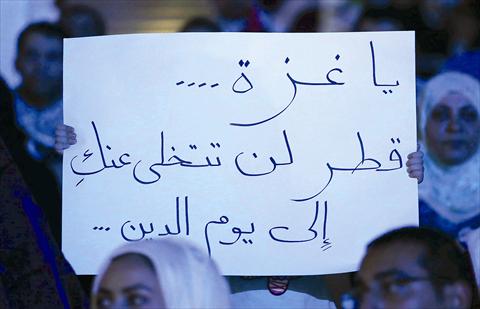 يا غزة ....
قطر لن تتخلى عنكِ
إلى يوم الدين ...